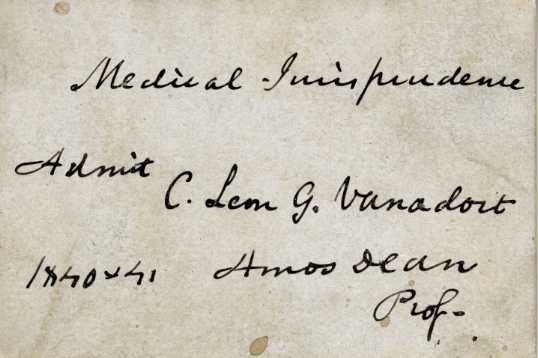 Medical Jurisprudence
Admit
C. Leon G. Vanadort
1840 & 41 Amos Dean
Prof.